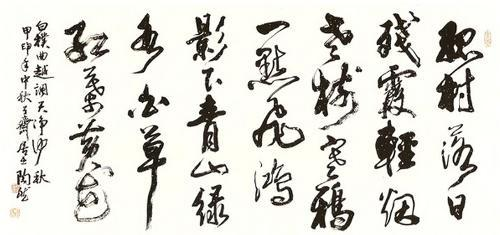 孤村落日
殘霞輕烟
老樹寒鴉
一點飛鴻
影下青山綠
水白草
紅葉黃花
白樸曲越調天淨沙 秋
甲申年中秋